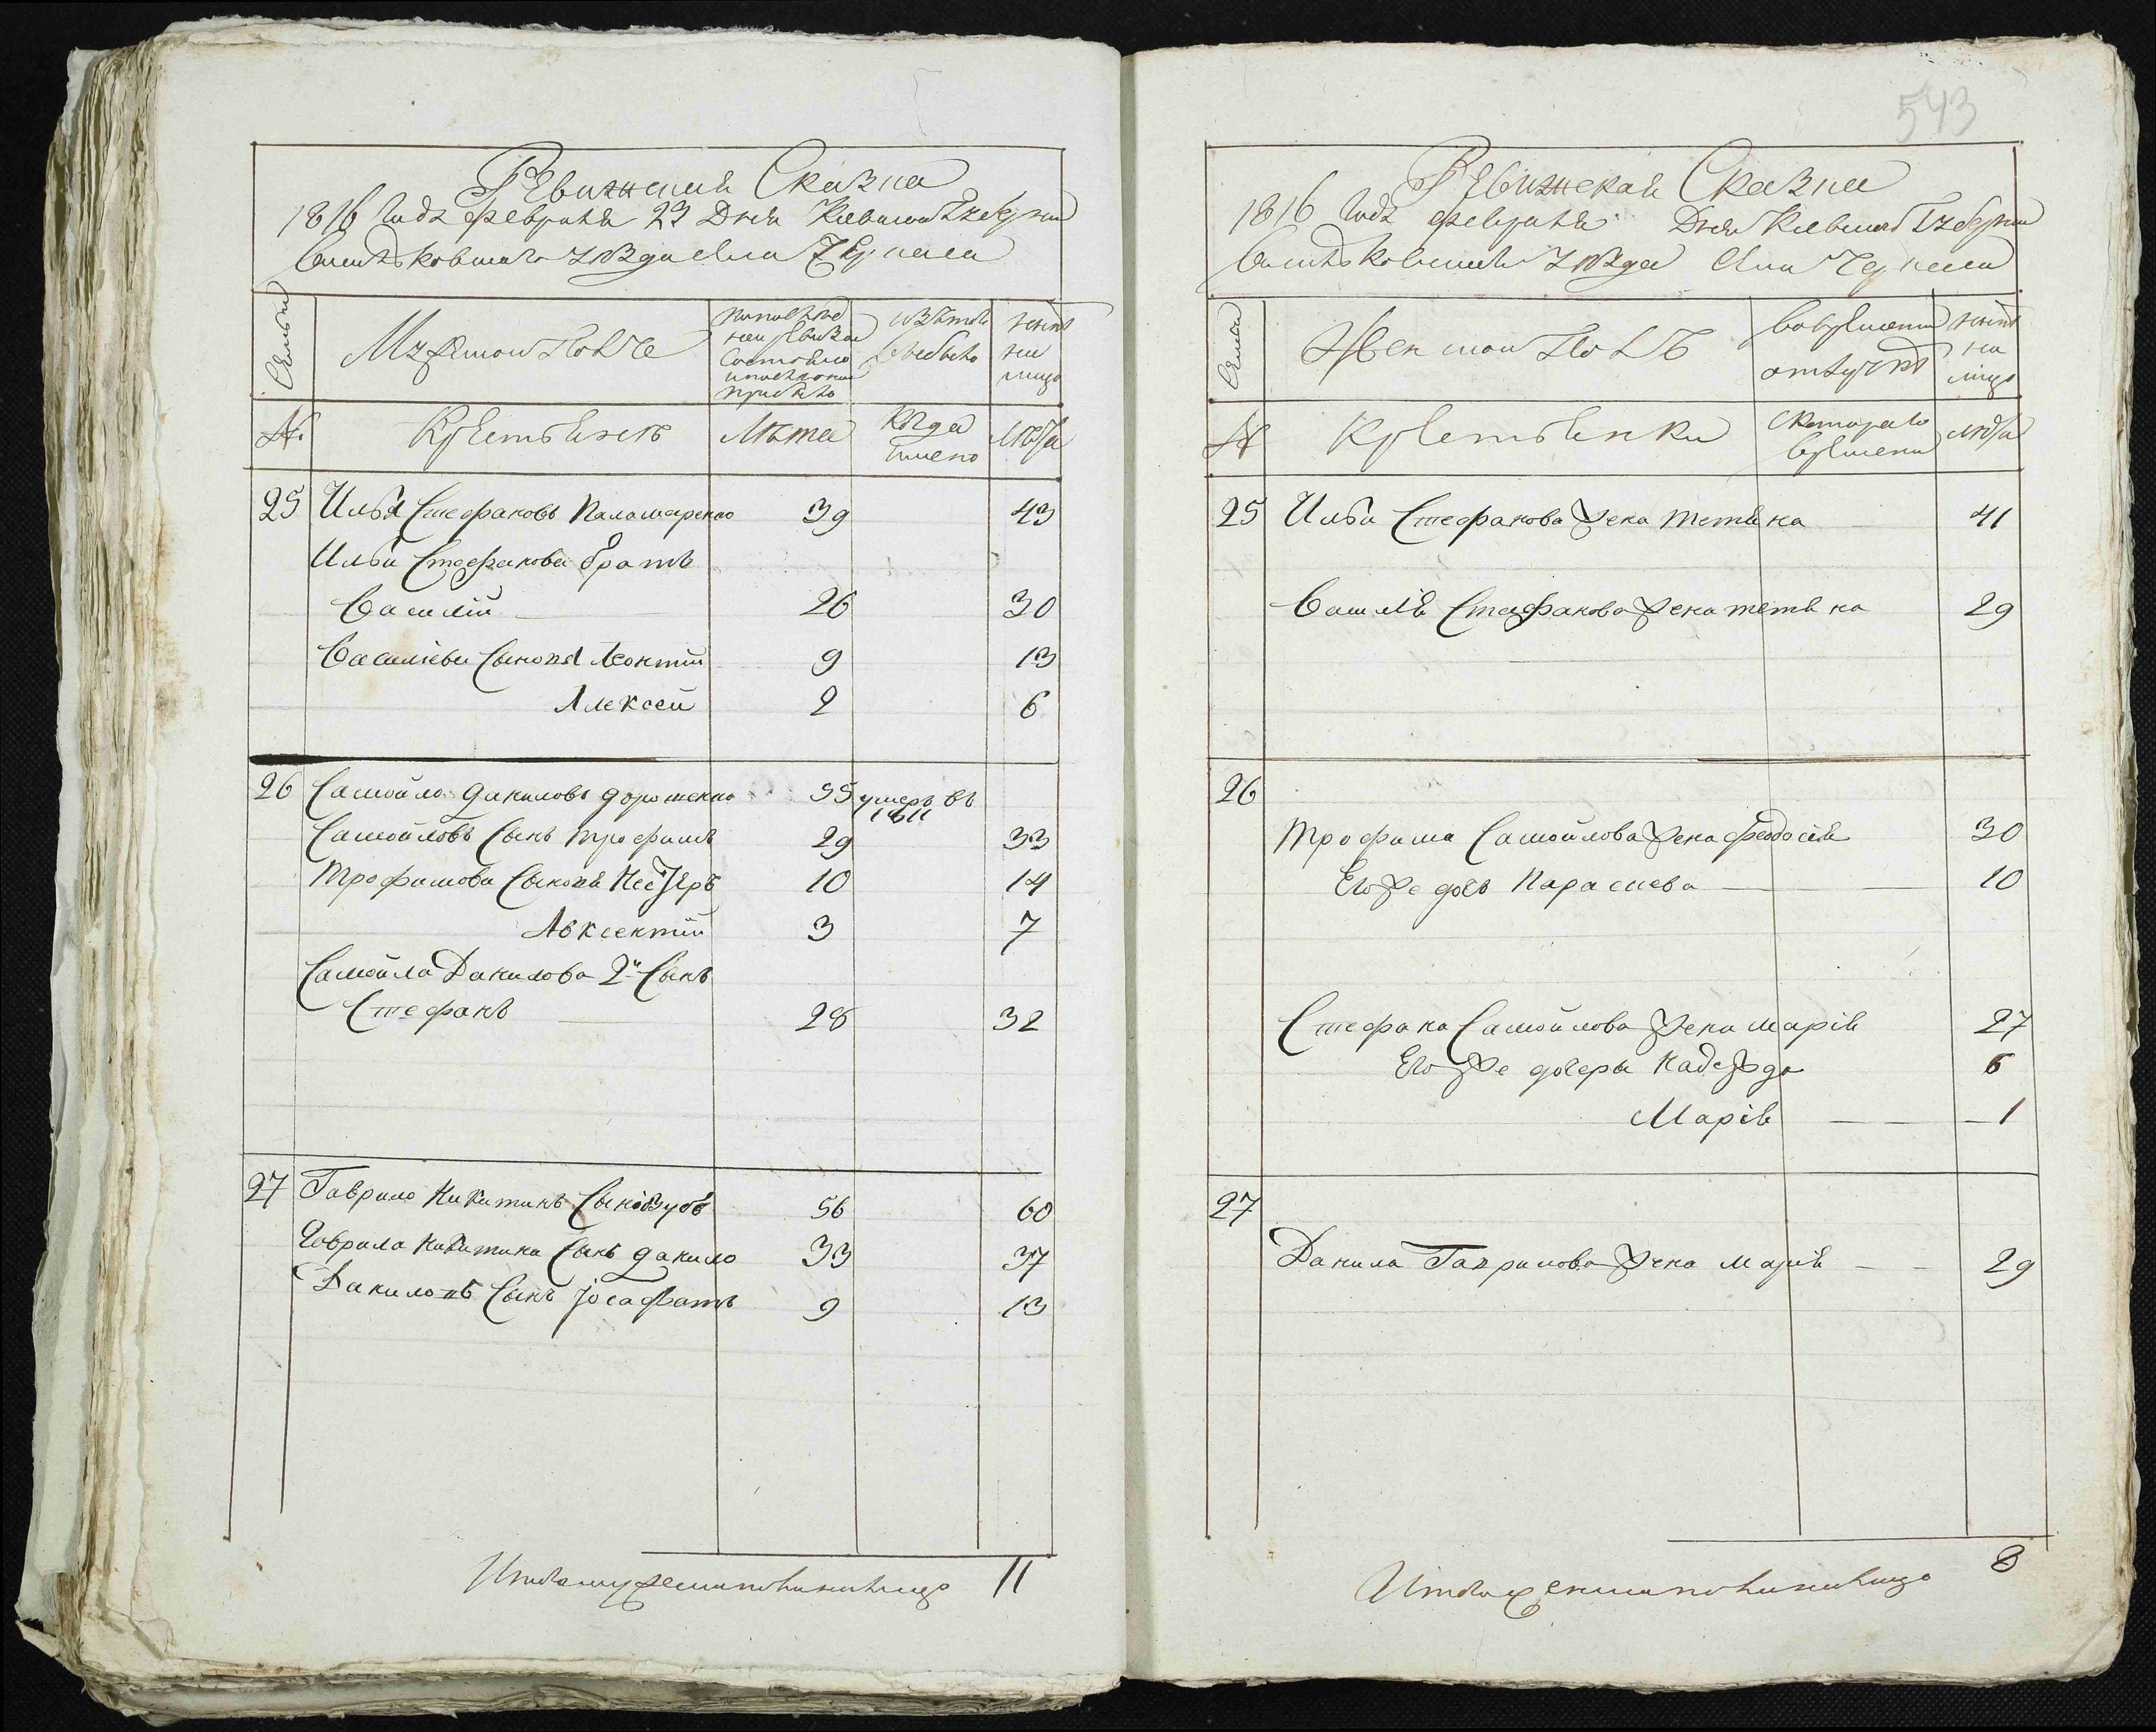 Ревижская Сказка
1816 года февраля 23 Дня Киевской Губернии
Васильковского уезда Села Чернеча
Семьи
Мужеской Полъ
По последней ревизии состояло и после оной прибыло
Изъ того выбыло
Ныне на лицо
№.
Крестьянекъ
Лета
Когда именно
Лета
25 Илья Стефановъ Паламаренко 39 43
Ильи Стефанова братъ
Василій 26 30
Василіевы Сыновья Леонтій 9 13
Алексей 2 6
26 Самойло Даниловъ Дорошенко 55 умеръ въ 1811
Самойловъ Сынъ Трофимъ 29 33
Трофимовы Сыновя Несторъ 10 14
Авксентій 3 7
Самойла Данилова 2й Сынъ
Стефанъ 28 32
27 Гаврило Никитинъ Сынъ Зубъ 56 60
Гаврила Никитина Сынъ Данило 33 37
Даниловъ Сынъ Іосафатъ 9 13
Итого мужеска пола на лицо 11
543
Ревижская Сказка
1816 года февраля Дня Киевской Губернии
Васильковского уезда Села Чернеча
Семьи
Женской Полъ
Во временной отлучке
Ныне на лицо
№
Крестьянки
С котораго времени
Лета
25 Ильи Стефанова жена Тетяна 41
Василія Стефанова жена Тетяна 29
26
Трофима Самойлова жена Феодосія 30
Его же дочь Параскева 10
Стефана Самойлова жена Марія 27
Его же дочеры Надежда 6
Марія 1
27
Данила Гаврилова жена Марія 29
Итого женска пола на лицо 8